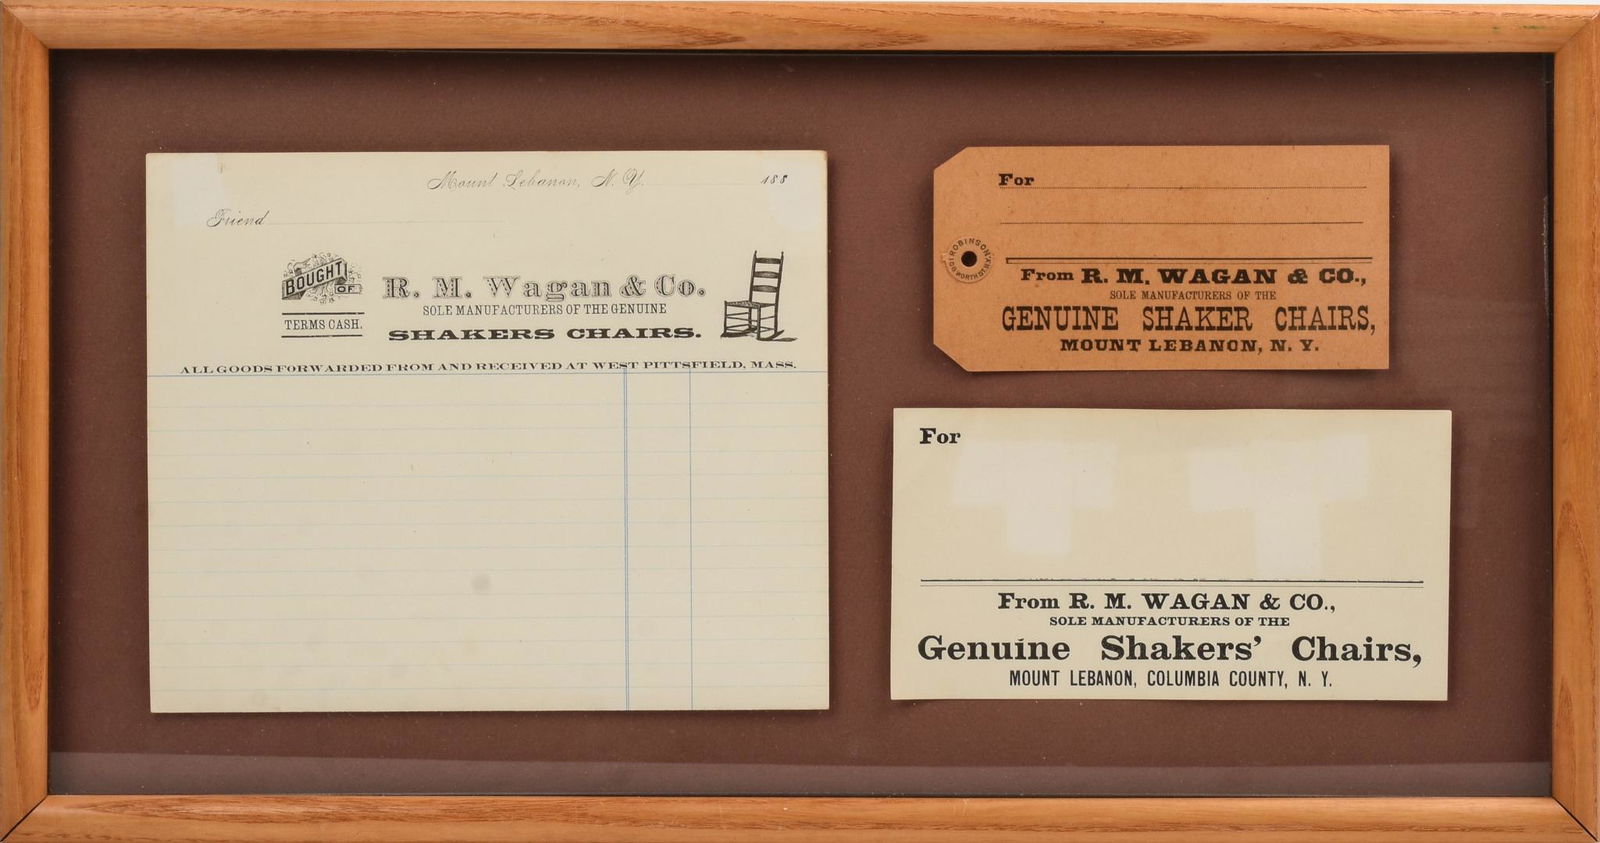 Mount Lebanon, N. Y. 188
Friend
BOUGHT
OF
TERMS CASH.
R. M. Wagan & Co.
SOLE MANUFACTURERS OF THE GENUINE
SHAKERS CHAIRS.
ALL GOODS FORWARDED FROM AND RECEIVED AT WEST PITTSFIELD, MASS.
For
ROBINSON
NORTH ST. N.Y.
From R. M. WAGAN & CO.,
SOLE MANUFACTURERS OF THE
GENUINE SHAKER CHAIRS,
MOUNT LEBANON, N. Y.
For
From R. M. WAGAN & CO.,
SOLE MANUFACTURERS OF THE
Genuine Shakers' Chairs,
MOUNT LEBANON, COLUMBIA COUNTY, N. Y.